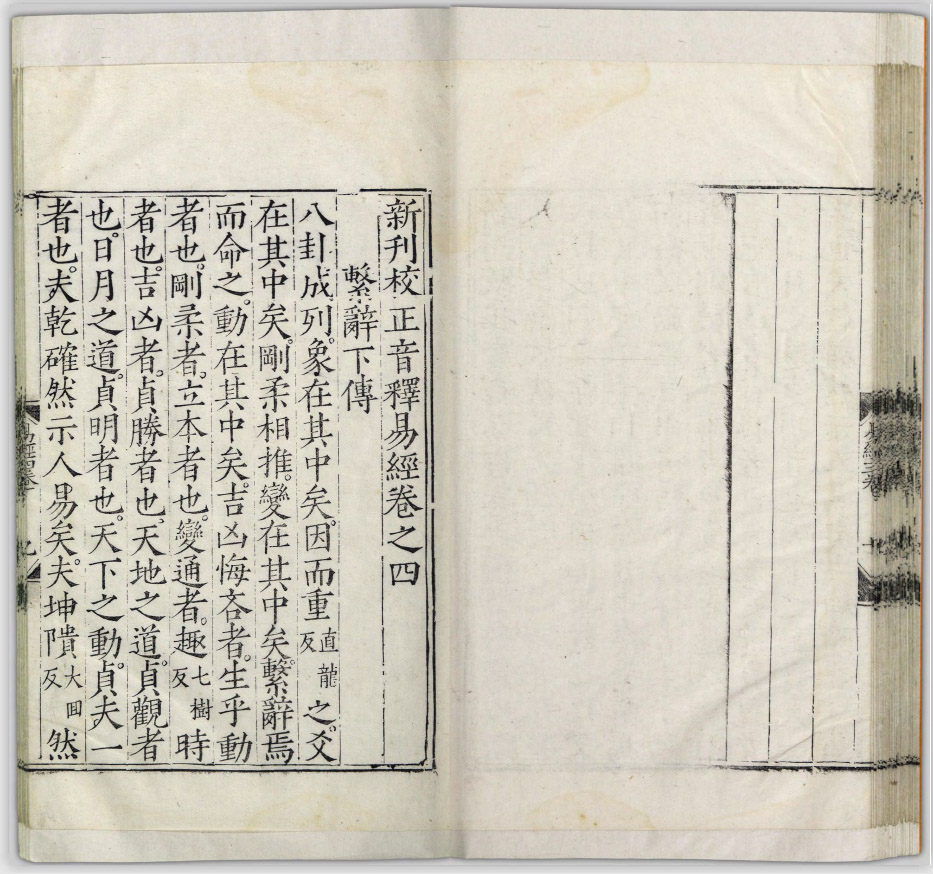 新刊校正音釋易經卷之四
繫辭下傳
八卦成列。象在其中矣。因而重直龍反之。爻
在其中矣。剛柔相推。變在其中矣。繫辭焉
而命之。動在其中矣。吉凶悔吝者。生乎動
者也。剛柔者。立本者也。變通者。趣七樹反時
者也。吉凶者。貞勝者也。天地之道。貞觀者
也。日月之道。貞明者也。天下之動。貞夫一
者也。夫乾確然示人易矣。夫坤隤大回反然